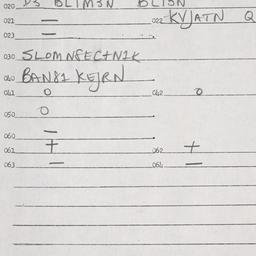 020 D3 BLIM3N BLISN
021 = 022 KVJATN Q
023 =
030 SLOMNSECTN1K
040 BAN81 KEJRN
041 0 042 0
050 0
060 –
061 + 062 +
063 – 064 –